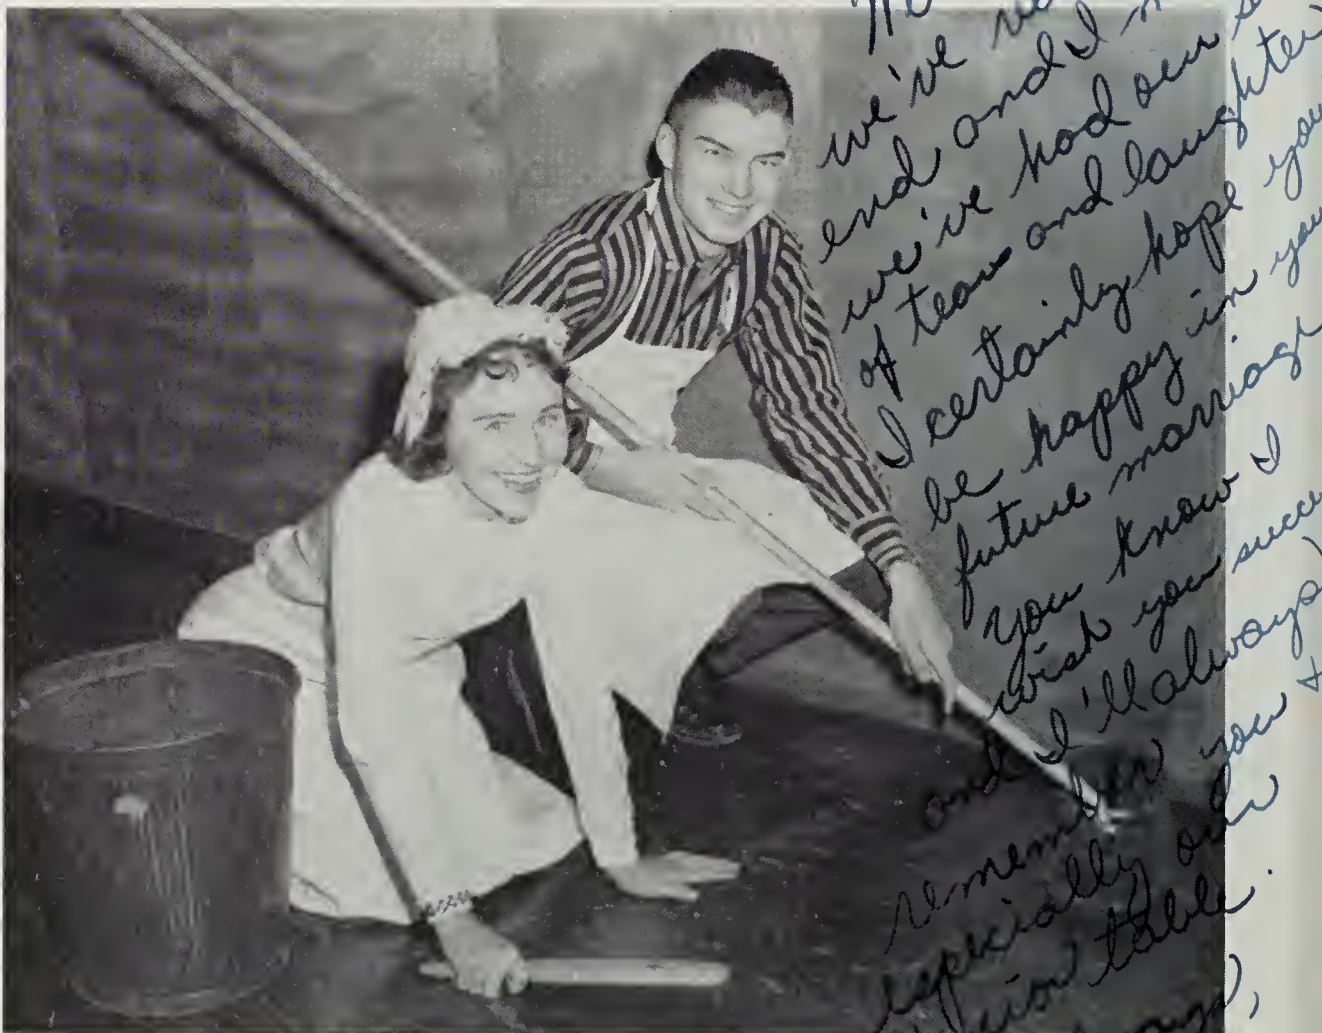 we've
end and I
we've had our
of tears and laughter
I certainly hope you
be happy in your
future marriage
you know I
wish you
and I'll always
remember you +
especially our
table.